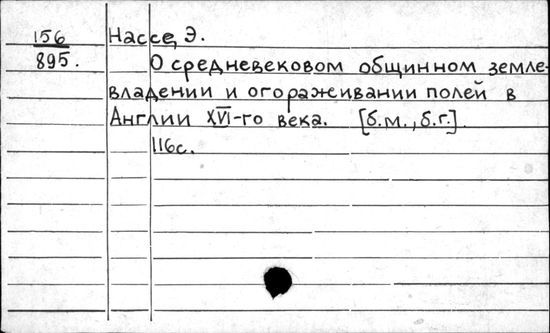 156 Нассе, Э.
895. О средневековом общинном земле-
владении и огораживании полей в
Англии XVI-го века. [б.м., б.г.].
116с.